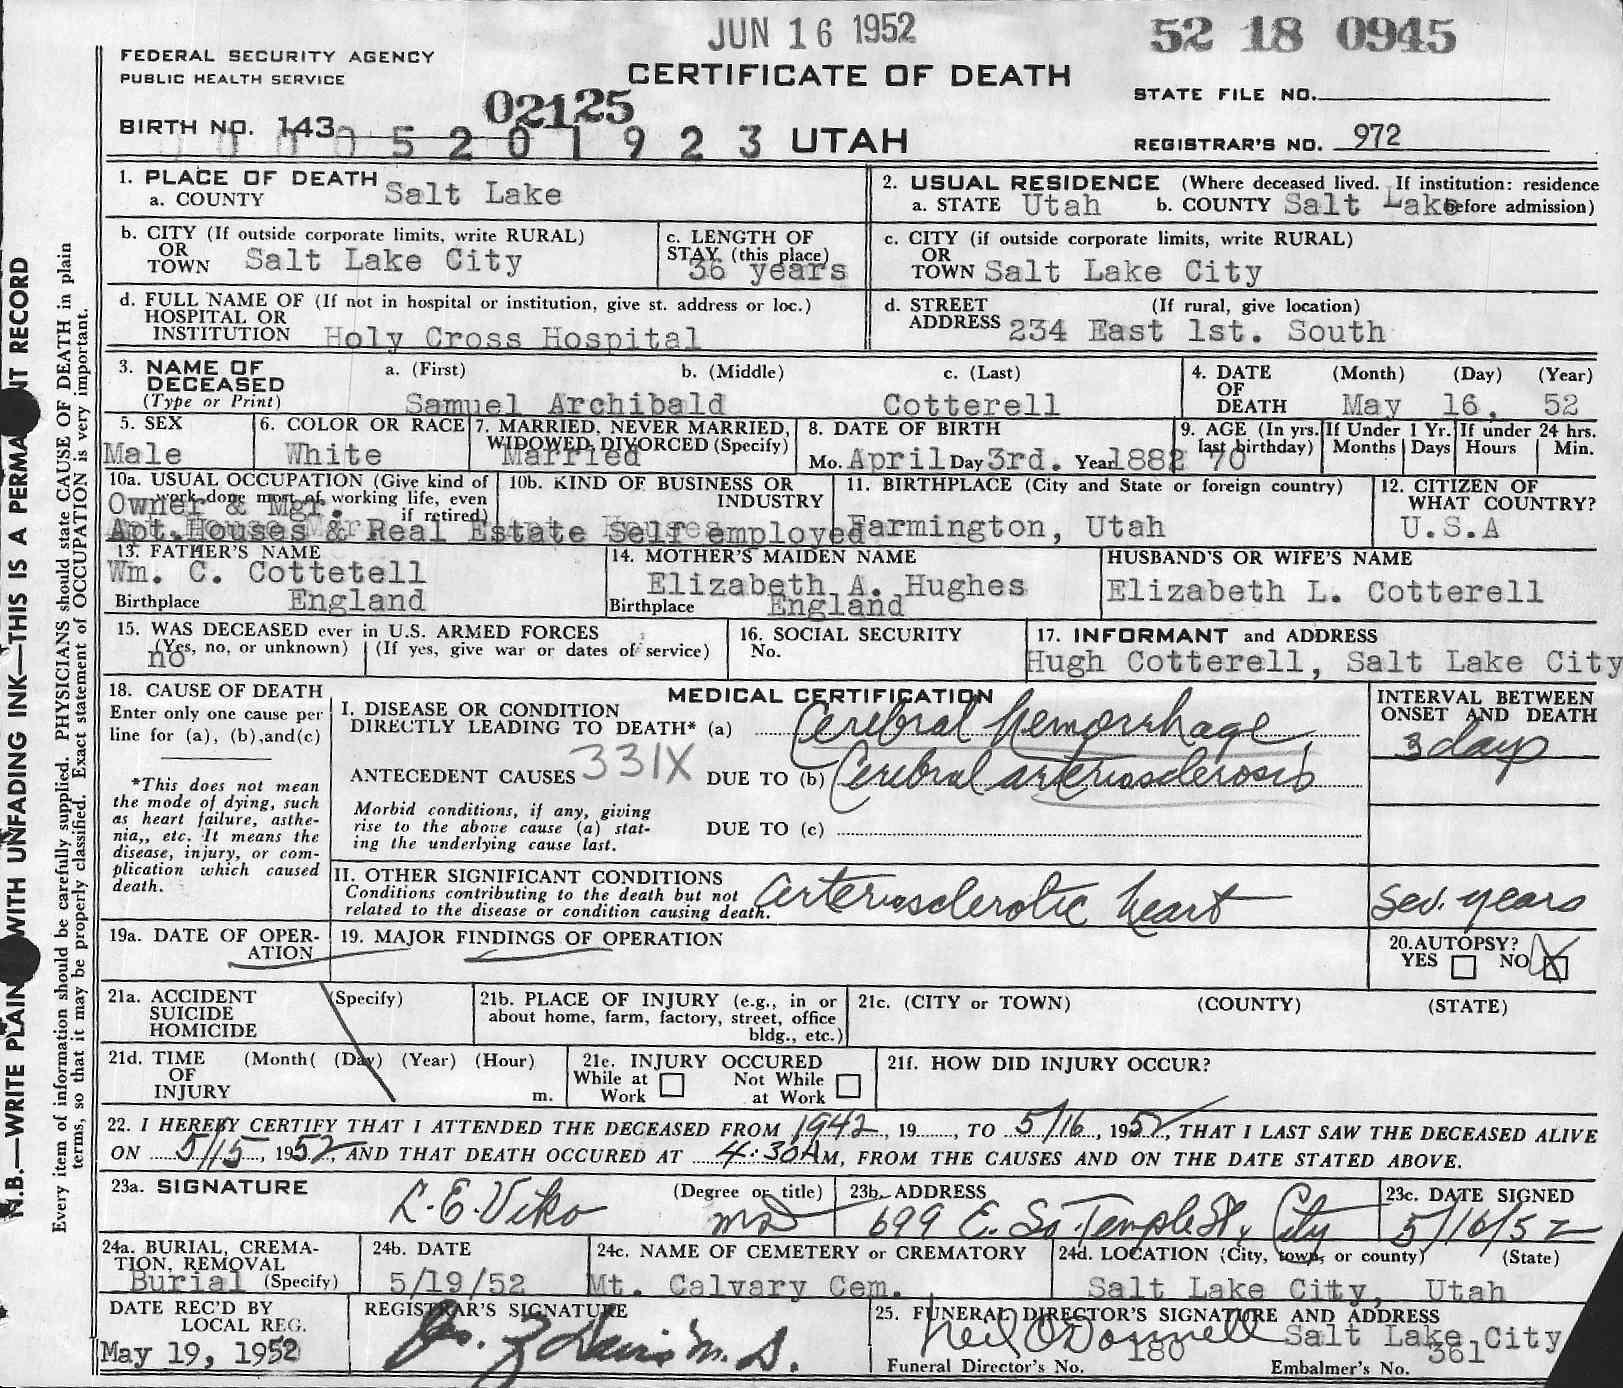 JUN 16 1952
52 18 0945
FEDERAL SECURITY AGENCY
PUBLIC HEALTH SERVICE
CERTIFICATE OF DEATH
STATE FILE NO.
02125
BIRTH NO. 143
5 2 0 1 9 2 3 UTAH
REGISTRAR'S NO. 972
1. PLACE OF DEATH
a. COUNTY Salt Lake
2. USUAL RESIDENCE (Where deceased lived. If institution: residence
before admission)
a. STATE Utah b. COUNTY Salt Lake
b. CITY (If outside corporate limits, write RURAL)
OR
TOWN Salt Lake City
c. LENGTH OF
STAY (this place)
36 years
c. CITY (if outside corporate limits, write RURAL)
OR
TOWN Salt Lake City
d. FULL NAME OF (If not in hospital or institution, give st. address or loc.)
HOSPITAL OR
INSTITUTION Holy Cross Hospital
d. STREET (If rural, give location)
ADDRESS 234 East 1st. South
3. NAME OF
DECEASED
(Type or Print)
a. (First) b. (Middle) c. (Last)
Samuel Archibald Cotterell
4. DATE
OF
DEATH
(Month) (Day) (Year)
May 16, 52
5. SEX
Male
6. COLOR OR RACE
White
7. MARRIED, NEVER MARRIED,
WIDOWED, DIVORCED (Specify)
Married
8. DATE OF BIRTH
Mo. April Day 3rd. Year 1882
9. AGE (In yrs.
last birthday)
70
If Under 1 Yr.
Months Days
If under 24 hrs.
Hours Min.
10a. USUAL OCCUPATION (Give kind of
work done most of working life, even
if retired)
Owner & Mgr.
Apt. Houses & Real Estate
10b. KIND OF BUSINESS OR
INDUSTRY
Self employed
11. BIRTHPLACE (City and State or foreign country)
Farmington, Utah
12. CITIZEN OF
WHAT COUNTRY?
U.S.A
13. FATHER'S NAME
Wm. C. Cottetell
Birthplace England
14. MOTHER'S MAIDEN NAME
Elizabeth A. Hughes
Birthplace England
HUSBAND'S OR WIFE'S NAME
Elizabeth L. Cotterell
15. WAS DECEASED ever in U.S. ARMED FORCES
(Yes, no, or unknown) (If yes, give war or dates of service)
no
16. SOCIAL SECURITY
No.
17. INFORMANT and ADDRESS
Hugh Cotterell, Salt Lake City
18. CAUSE OF DEATH
Enter only one cause per
line for (a), (b),and(c)
*This does not mean
the mode of dying, such
as heart failure, asthe-
nia,, etc. It means the
disease, injury, or com-
plication which caused
death.
MEDICAL CERTIFICATION
I. DISEASE OR CONDITION
DIRECTLY LEADING TO DEATH* (a) Cerebral hemorrhage,
ANTECEDENT CAUSES 331X DUE TO (b) Cerebral arteriosclerosis
Morbid conditions, if any, giving
rise to the above cause (a) stat-
ing the underlying cause last.
DUE TO (c)
INTERVAL BETWEEN
ONSET AND DEATH
3 days
II. OTHER SIGNIFICANT CONDITIONS
Conditions contributing to the death but not
related to the disease or condition causing death.
arteriosclerotic heart
Sev. years
19a. DATE OF OPER-
ATION
19. MAJOR FINDINGS OF OPERATION
20. AUTOPSY?
YES NO X
21a. ACCIDENT (Specify)
SUICIDE
HOMICIDE
21b. PLACE OF INJURY (e.g., in or
about home, farm, factory, street, office
bldg., etc.)
21c. (CITY or TOWN) (COUNTY) (STATE)
21d. TIME (Month( (Day) (Year) (Hour)
OF
INJURY m.
21e. INJURY OCCURED
While at Work Not While at Work
21f. HOW DID INJURY OCCUR?
22. I HEREBY CERTIFY THAT I ATTENDED THE DECEASED FROM 1942, 19......, TO 5/16, 1952, THAT I LAST SAW THE DECEASED ALIVE
ON 5/15, 1952, AND THAT DEATH OCCURED AT 4:30AM, FROM THE CAUSES AND ON THE DATE STATED ABOVE.
23a. SIGNATURE (Degree or title)
L.E. Viko MD
23b. ADDRESS
699 E. So. Temple St, City
23c. DATE SIGNED
5/16/52
24a. BURIAL, CREMA-
TION, REMOVAL
Burial (Specify)
24b. DATE
5/19/52
24c. NAME OF CEMETERY or CREMATORY
Mt. Calvary Cem.
24d. LOCATION (City, town, or county) (State)
Salt Lake City, Utah
DATE REC'D BY
LOCAL REG.
May 19, 1952
REGISTRAR'S SIGNATURE
M.D.
25. FUNERAL DIRECTOR'S SIGNATURE AND ADDRESS
Neil O'Donnell Salt Lake City
Funeral Director's No. 180 Embalmer's No. 361
N.B.—WRITE PLAIN WITH UNFADING INK—THIS IS A PERMA NT RECORD
Every item of information should be carefully supplied. PHYSICIANS should state CAUSE OF DEATH in plain
terms, so that it may be properly classified. Exact statement of OCCUPATION is very important.